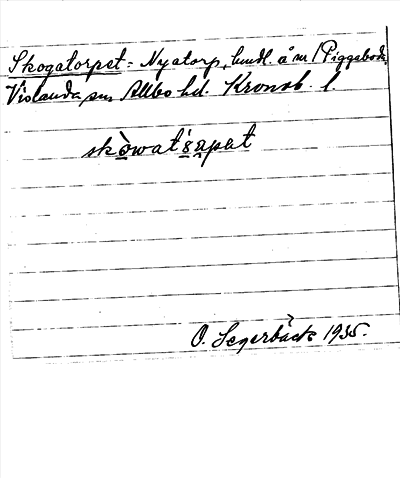 Skogatorpet = Nyatorp, lundl. å nr 1 Piggaboda,
Vislanda sn Allbo hd. Kronob. l.
skòwat́s̀ąpat
O. Segerbäck 1935.